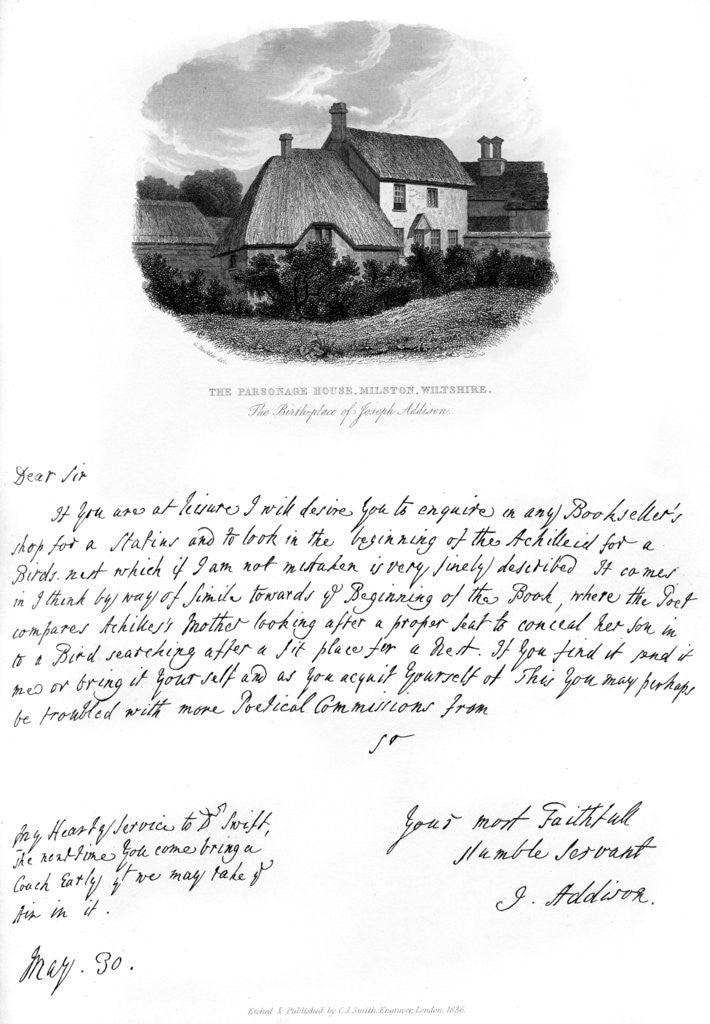 G. Buckler del.
THE PARSONAGE HOUSE, MILSTON, WILTSHIRE.
The Birth-place of Joseph Addison.
Dear Sir
If You are at leisure I will desire You to enquire in any Bookseller's
shop for a Statius and to look in the beginning of the Achilleid for a
Birds-nest which if I am not mistaken is very finely described It comes
in I think by way of Simile towards yᵉ Beginning of the Book, where the Poet
compares Achilles's Mother looking after a proper seat to conceal her son in
to a Bird searching after a fit place for a Nest. If You find it send it
me or bring it Your self and as you acquit Yourself of This You may perhaps
be troubled with more Poetical Commissions from
Sr
Your most Faithfull
Humble Servant
J. Addison.
My Hearty Service to Dʳ Swift,
The next time You come bring a
Coach Early yᵗ we may take yᵉ
Air in it.
May. 30.
Etched & Published by C.J. Smith, Engraver, London, 1836.